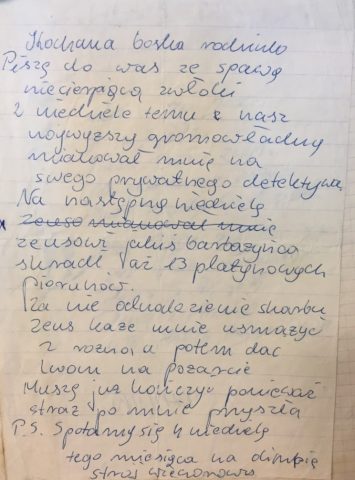 Kochana boska rodzinko
Piszę do was ze sprawą
niecierpiącą zwłoki
2 niedziele temu nasz
najwyższy gromowładny
mianował mnie na
swego prywatnego detektywa
Na następną niedzielę
zeusowi mianował mnie
zeusowi jakiś barbażyńca
skradł aż 13 platynowych
piorunów.
Za nie odnalezienie skarbu
zeus każe mnie usmażyć
z rożna a potem dać
lwom na pożarcie
Muszę już kończyć ponieważ
straż po mnie przyszła
P.S. Spotkamy się 4 niedzielę
tego miesiąca na olimpie
strój wieczorowy